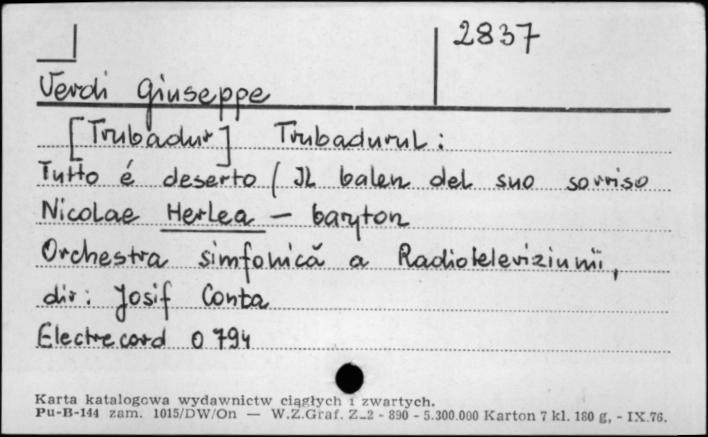 2837
Verdi Giuseppe
[Trubadur] Trubadurul:
Tutto é deserto / Il balen del suo sorriso
Nicolae Herlea – baryton
Orchestra simfonică a Radioteleviziunii,
dir: Josif Conta
Electrecord 0794
Karta katalogowa wydawnictw ciągłych i zwartych.
Pu-B-144 zam. 1015/DW/On — W.Z.Graf. Z-2 - 890 - 5.300.000 Karton 7 kl. 180 g, - IX.76.